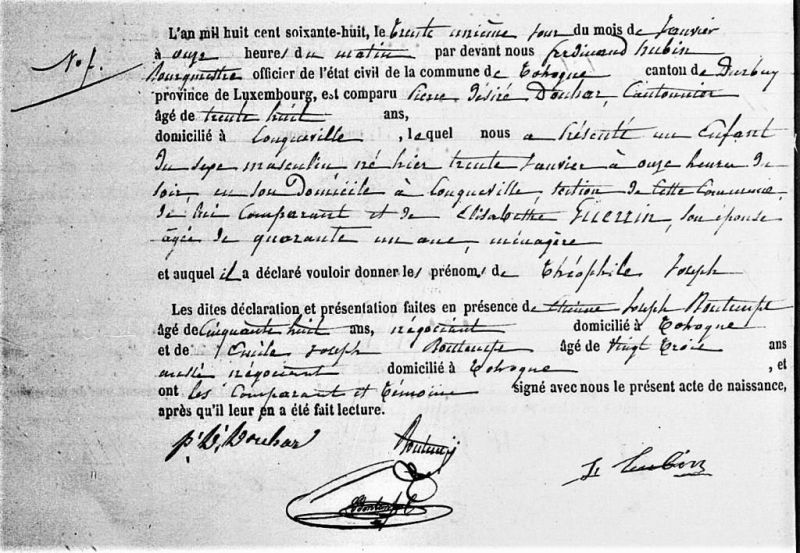 L'an mil huit cent soixante-huit, le trente unième jour du mois de Janvier
à onze heures du matin par devant nous ferdinand hubin
N° 1.
Bourgmestre officier de l'état civil de la commune de Tohogne canton de Durbuy
province de Luxembourg, est comparu Pierre Désiré Douhar, Cantonnier
âgé de trente huit ans,
domicilié à Longueville, lequel nous a Présenté un Enfant
du sexe masculin né hier trente Janvier à onze heures du
soir, en son Domicile à Longueville, section de Cette Commune,
de lui Comparant et de Elisabethe Guerrin, son épouse
âgée de quarante un ans, ménagère
et auquel il a déclaré vouloir donner les prénoms de Théophile Joseph
Les dites déclaration et présentation faites en présence de Etienne Joseph Bontemps
âgé de Cinquante huit ans, négociant domicilié à Tohogne
et de Emile Joseph Bontemps âgé de Vingt Trois ans
aussi négociant domicilié à Tohogne, et
ont les Comparant et Témoins signé avec nous le présent acte de naissance,
après qu'il leur en a été fait lecture.
p. D. Douhar Bontemps
Bontemps E
F hubin